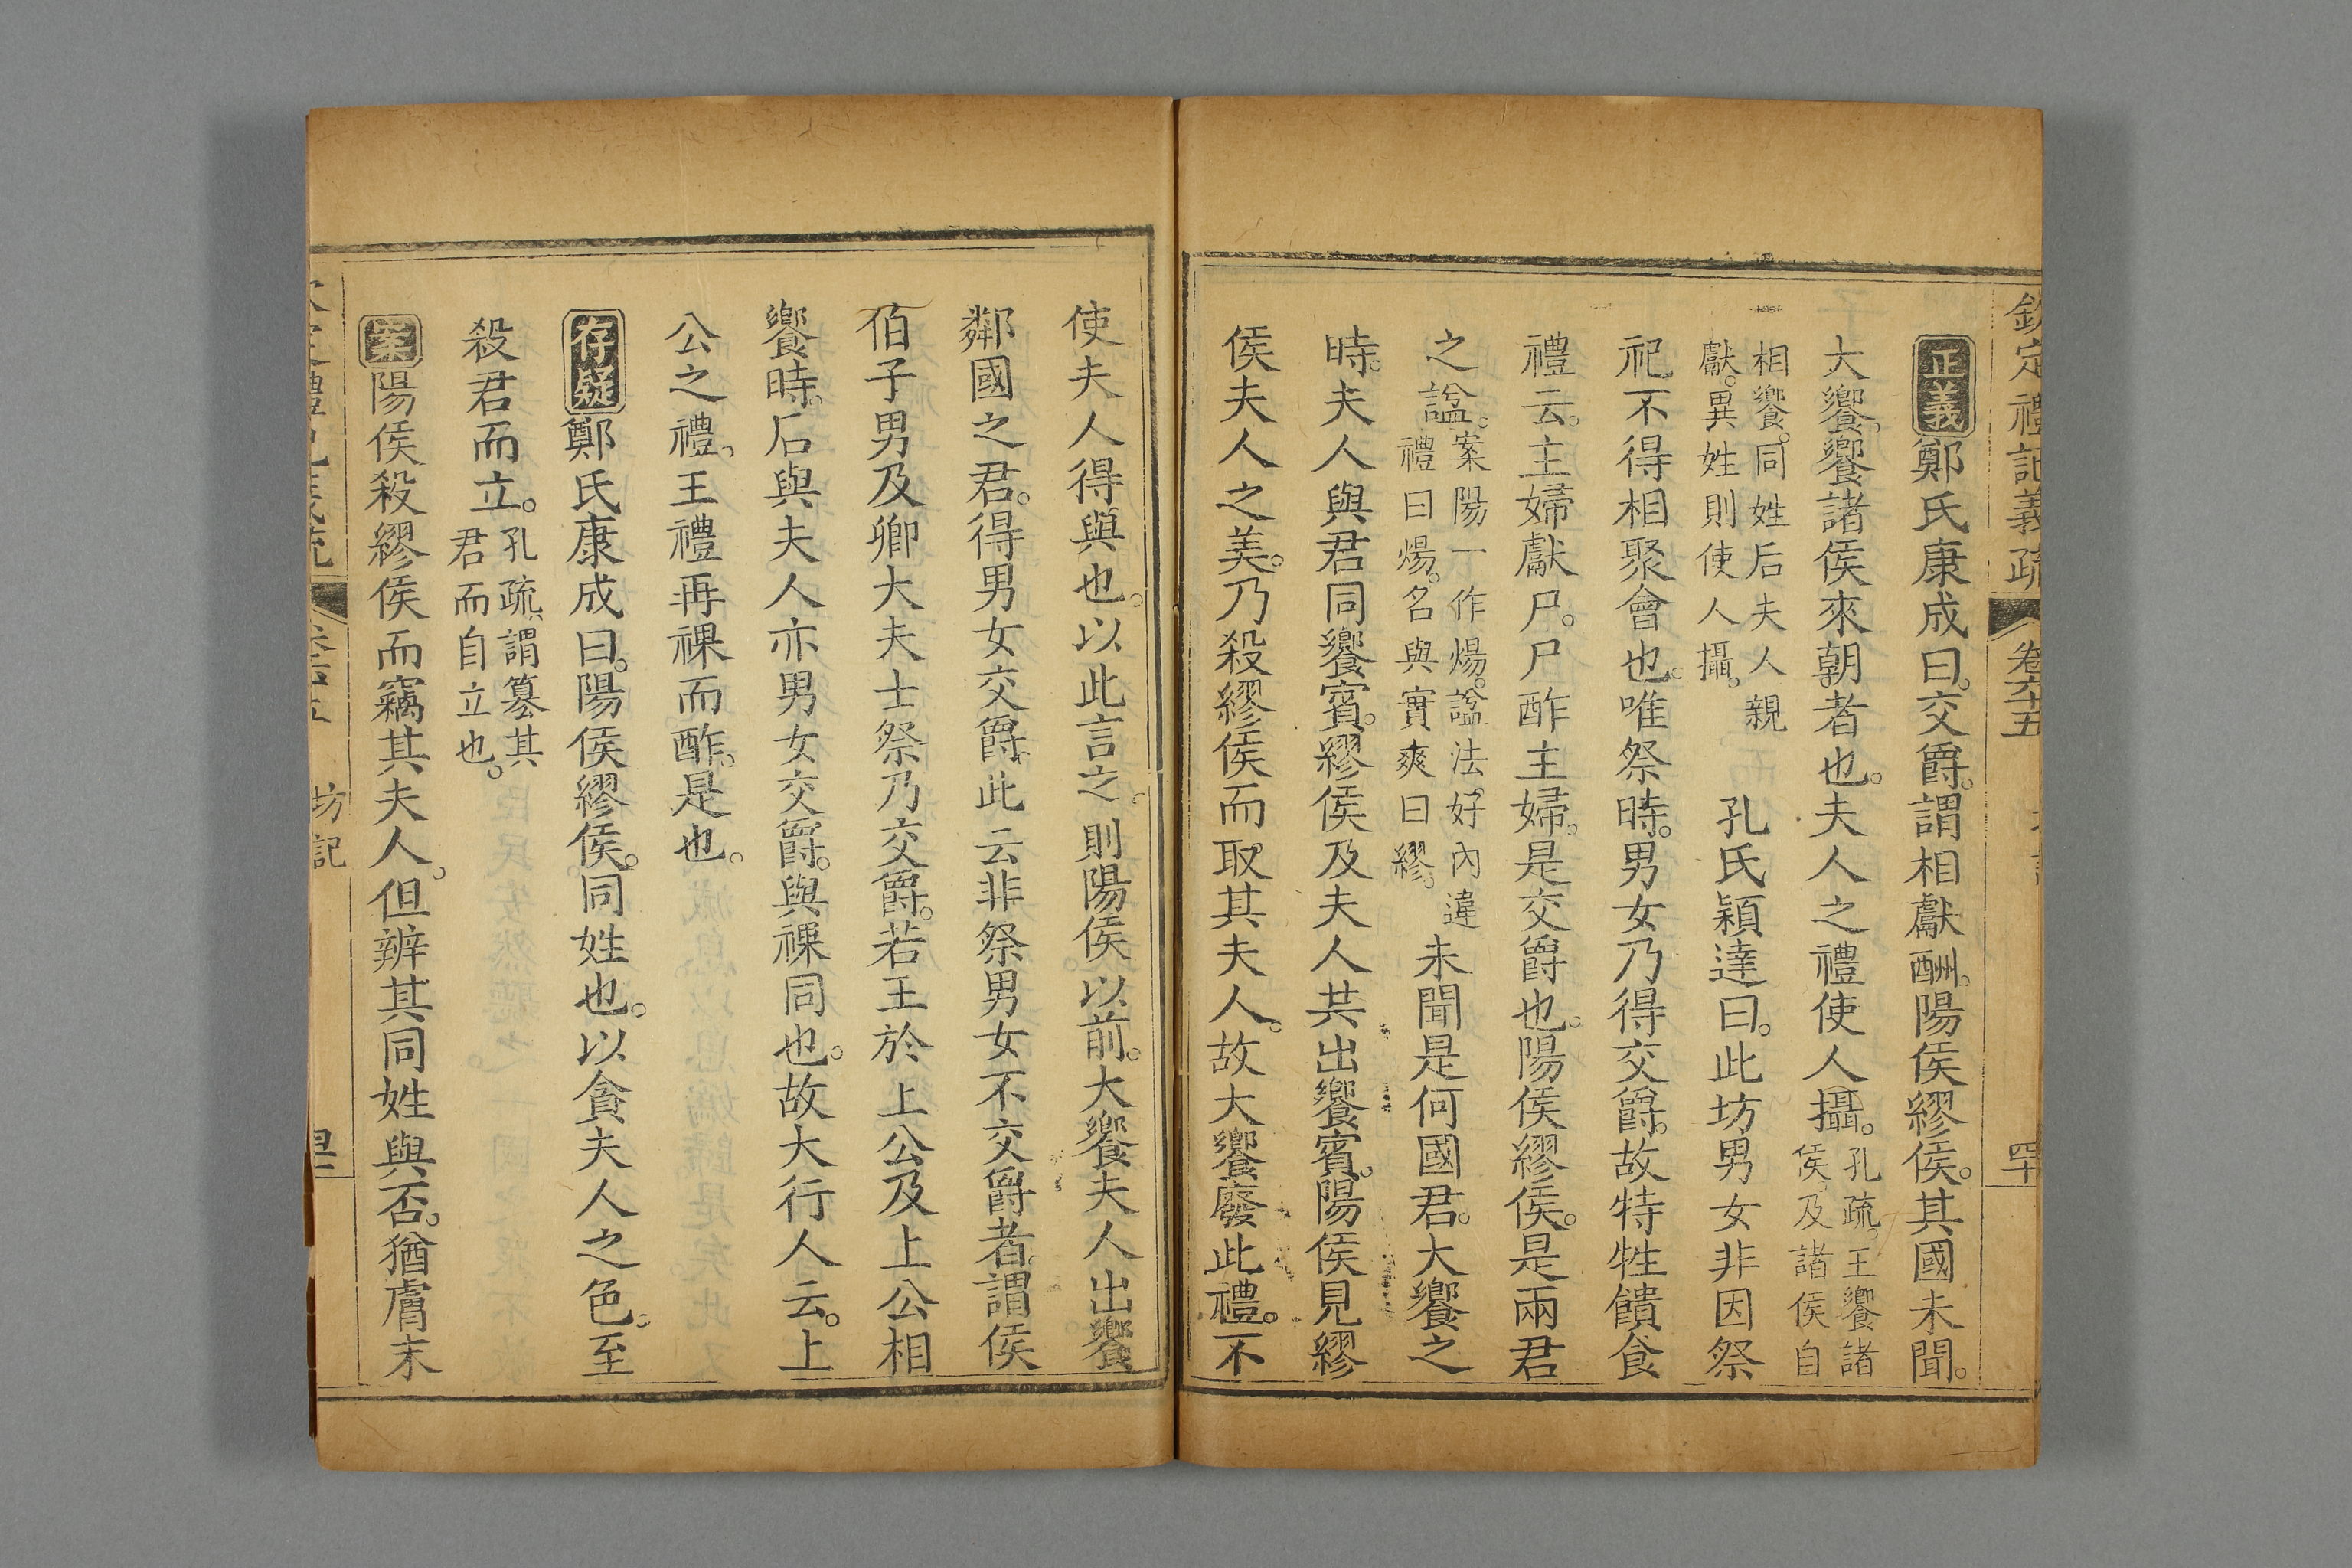 欽定禮記義疏 卷六十五 四十
正義鄭氏康成曰。交爵。謂相獻酬。陽侯繆侯。其國未聞。
大饗。饗諸侯來朝者也。夫人之禮使人攝。孔疏。王饗諸侯。及諸侯自
相饗。同姓后夫人親獻。異姓則使人攝。 孔氏穎達曰。此坊男女非因祭
祀不得相聚會也。唯祭時。男女乃得交爵。故特牲饋食
禮云。主婦獻尸。尸酢主婦。是交爵也。陽侯繆侯。是兩君
之諡。案陽一作煬。諡法。好內違禮曰煬。名與實爽曰繆。未聞是何國君。大饗之
時。夫人與君同饗賓。繆侯及夫人共出饗賓。陽侯見繆
侯夫人之美。乃殺繆侯而取其夫人。故大饗廢此禮。不
使夫人得與也。以此言之。則陽侯以前。大饗夫人出饗
鄰國之君。得男女交爵。此云非祭男女不交爵者。謂侯
伯子男及卿大夫士祭乃交爵。若王於上公及上公相
饗時。后與夫人亦男女交爵。與祼同也。故大行人云。上
公之禮。王禮再祼而酢。是也。
存疑鄭氏康成曰。陽侯繆侯。同姓也。以貪夫人之色。至
殺君而立。孔疏。謂篡其君而自立也。
案陽侯殺繆侯而竊其夫人。但辨其同姓與否。猶膚末
坊記